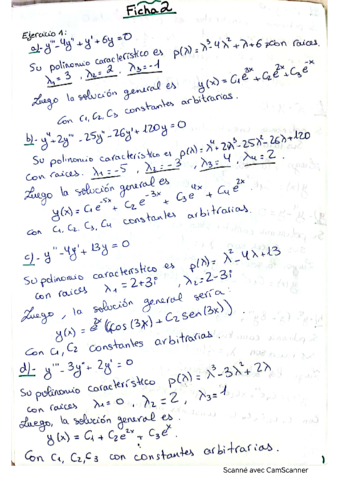 Ficha 2
Ejercicio 1:
a) y''' - 4y'' + y' + 6y = 0
Su polinomio característico es p(λ) = λ³ - 4λ² + λ + 6, con raices,
λ₁ = 3, λ₂ = 2, λ₃ = -1
Luego la solución general es y(x) = C₁e^{3x} + C₂e^{2x} + C₃e^{-x}
con C₁, C₂, C₃ constantes arbitrarias.
b) y'''' + 2y''' - 25y'' - 26y' + 120y = 0
Su polinomio característico es p(λ) = λ⁴ + 2λ³ - 25λ² - 26λ + 120
con raices. λ₁ = -5, λ₂ = -3, λ₃ = 4, λ₄ = 2.
Luego la solución general es
y(x) = C₁e^{-5x} + C₂e^{-3x} + C₃e^{4x} + C₄e^{2x}
con C₁, C₂, C₃, C₄ constantes arbitrarias.
c) y'' - 4y' + 13y = 0
Su polinomio característico es p(λ) = λ² - 4λ + 13
con raices λ₁ = 2+3i, λ₂ = 2-3i
Luego, la solución general sería:
y(x) = e^{2x}(C₁cos(3x) + C₂sen(3x))
Con C₁, C₂ constantes arbitrarias.
d) y''' - 3y'' + 2y' = 0
Su polinomio característico p(λ) = λ³ - 3λ² + 2λ
con raices λ₁ = 0, λ₂ = 2, λ₃ = 1
Luego, la solución general es.
y(x) = C₁ + C₂e^{2x} + C₃e^{x}.
Con C₁, C₂, C₃ con constantes arbitrarias.
Scanné avec CamScanner